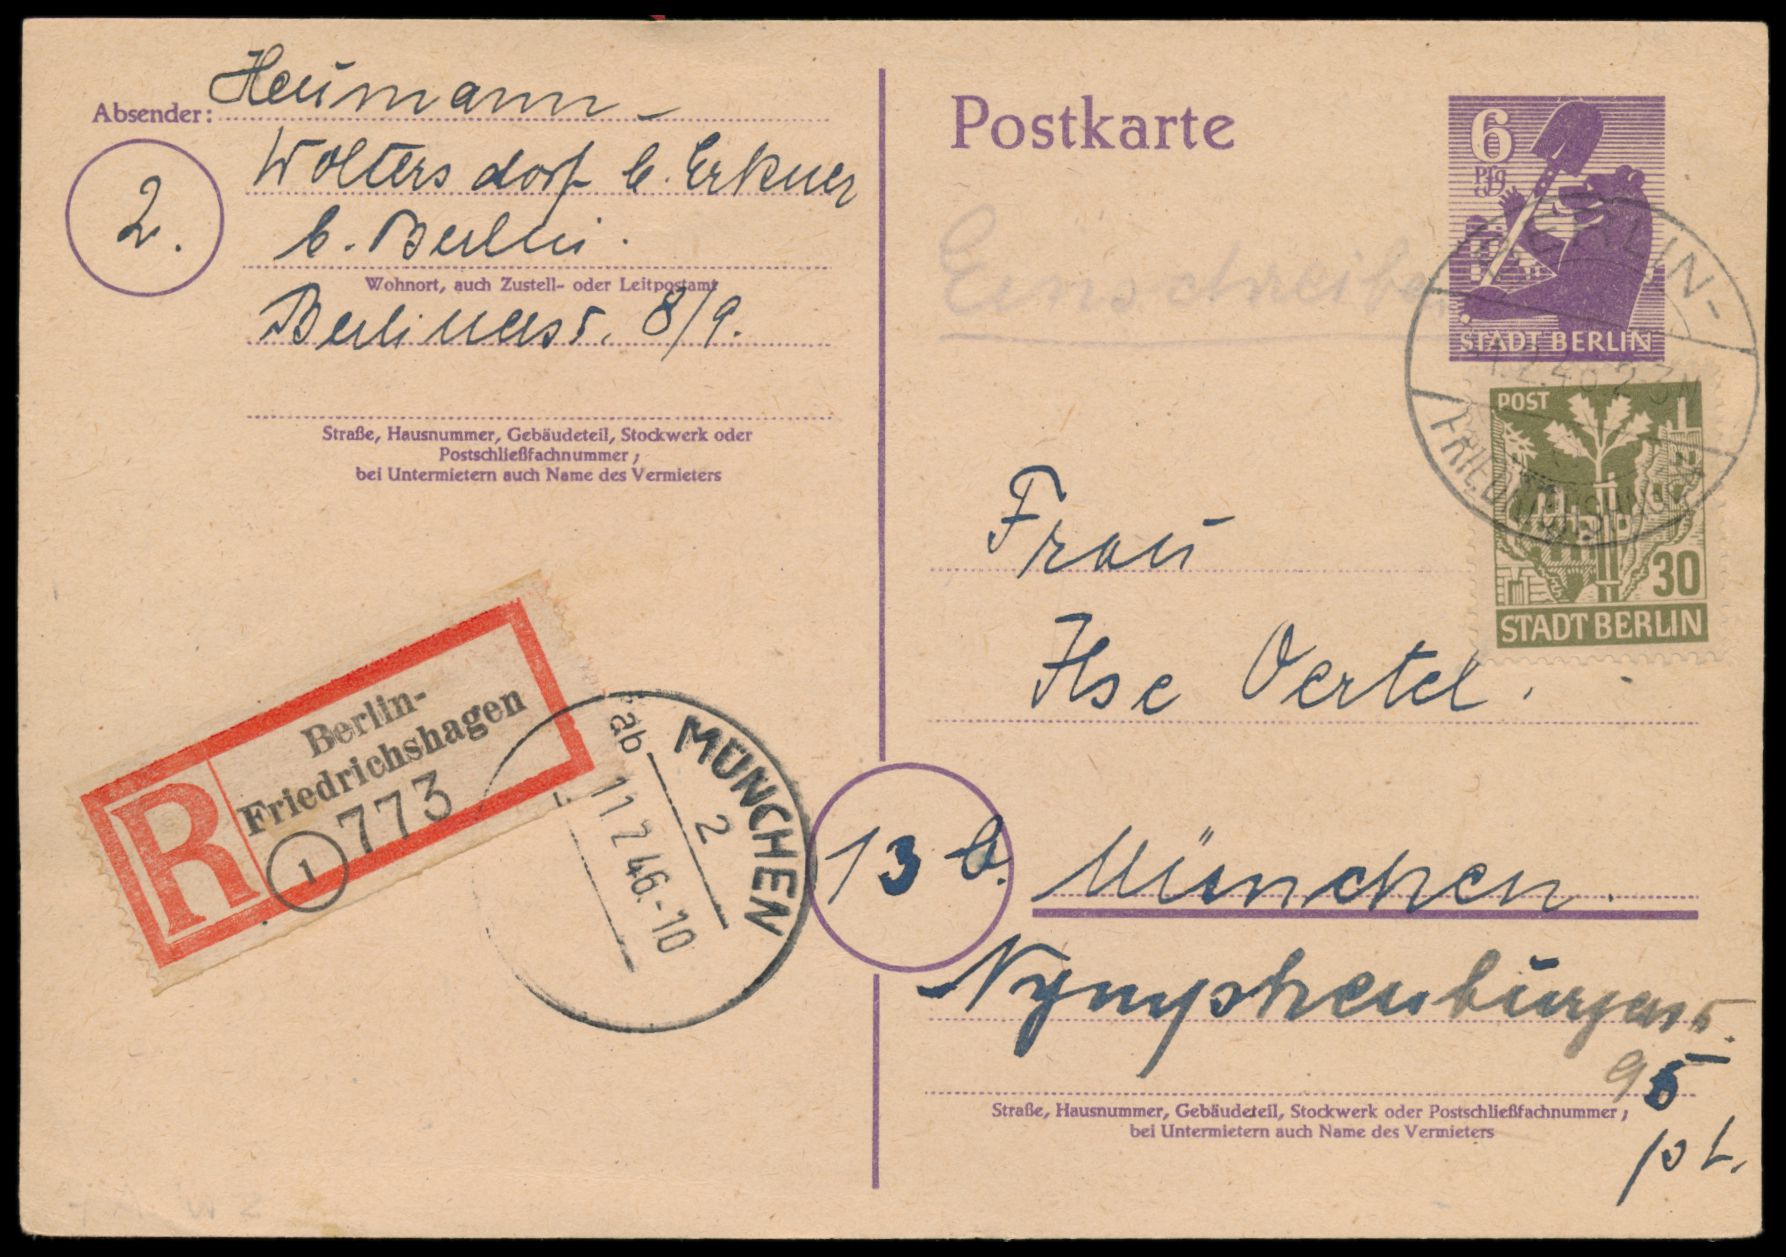 Absender: Heumann
2.
Woltersdorf b. Erkner
b. Berlin.
Wohnort, auch Zustell- oder Leitpostamt
Berlinerstr. 8/9.
Straße, Hausnummer, Gebäudeteil, Stockwerk oder
Postschließfachnummer;
bei Untermietern auch Name des Vermieters
R
Berlin-
Friedrichshagen
1 773
ab
MÜNCHEN
2
11 2 46.-10
Postkarte
Einschreiben
6
Pfg
STADT BERLIN
BERLIN-
FRIEDRICHSHAGEN
POST
30
STADT BERLIN
Frau
Ilse Oertel.
13 b. München.
Nymphenburgerstr.
95
Straße, Hausnummer, Gebäudeteil, Stockwerk oder Postschließfachnummer;
bei Untermietern auch Name des Vermieters